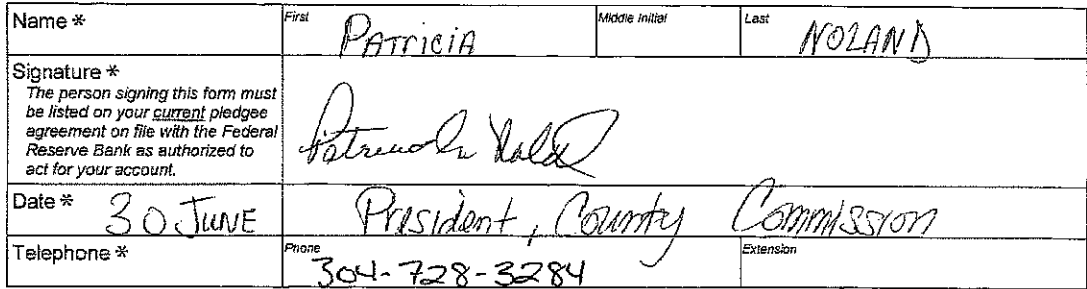 Name * First PATRICIA Middle Initial Last NOLAND
Signature *
The person signing this form must
be listed on your current pledgee
agreement on file with the Federal
Reserve Bank as authorized to
act for your account.
Date * 30 JUNE President, County Commission
Telephone * Phone 304-728-3284 Extension